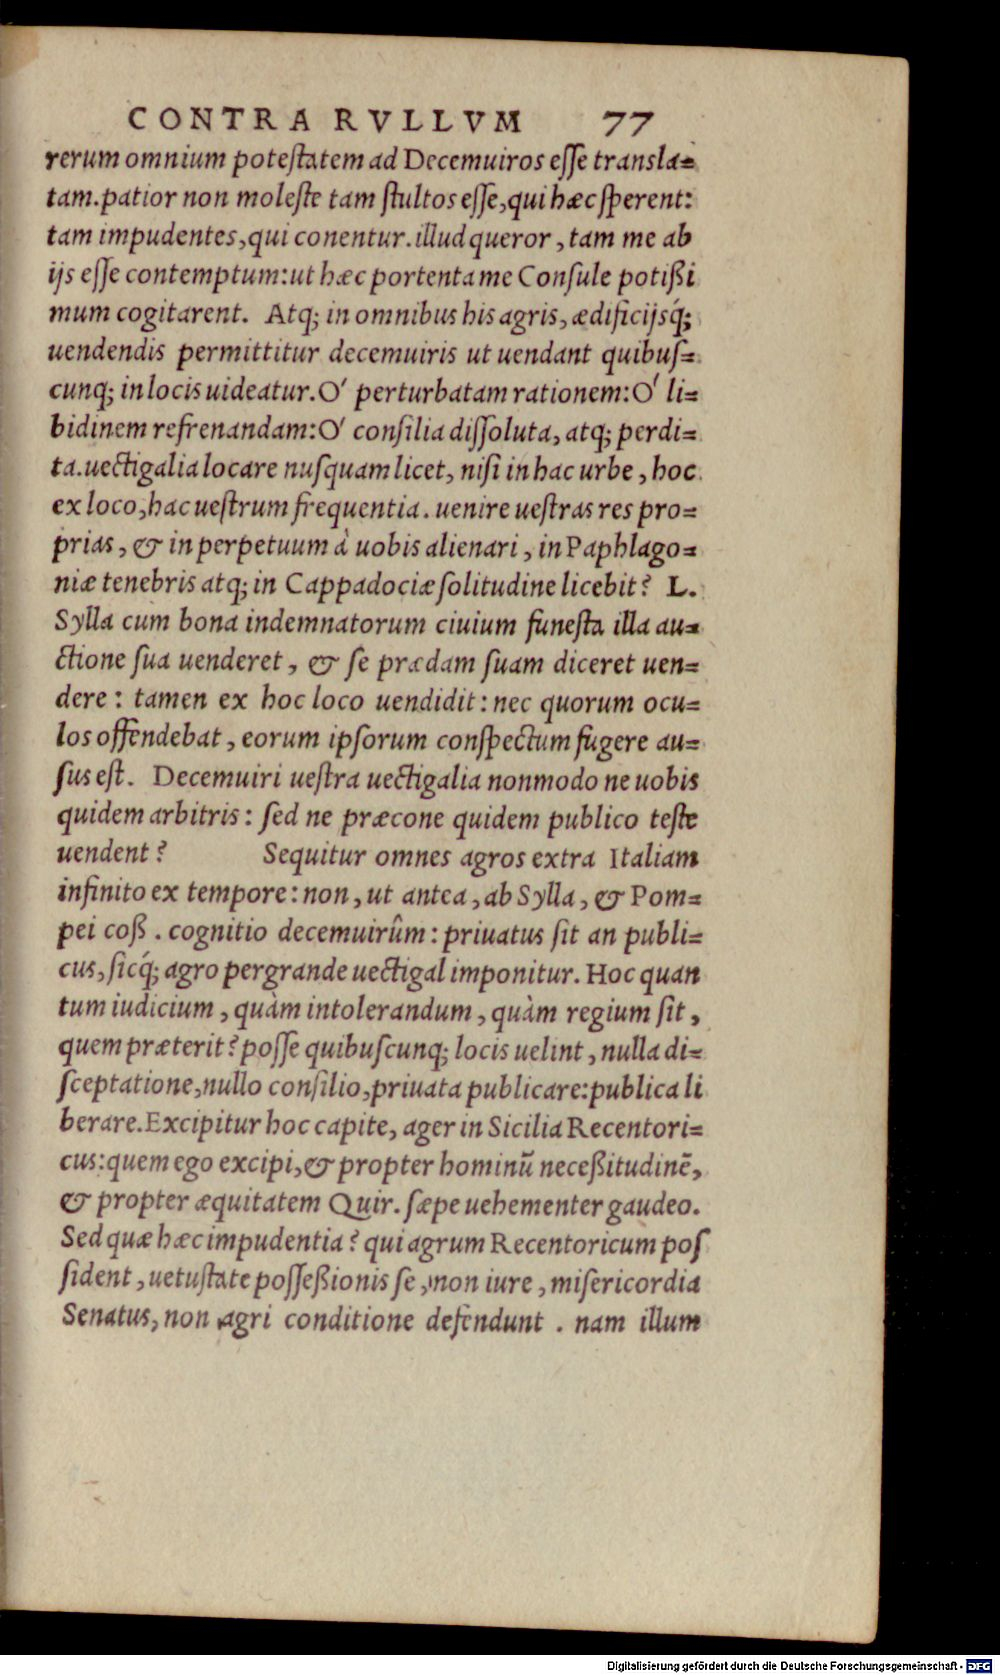 CONTRA RVLLVM 77
rerum omnium poteſtatem ad Decemuiros eſſe transla=
tam.patior non moleſte tam ſtultos eſſe,qui hæc ſperent:
tam impudentes,qui conentur.illud queror, tam me ab
ijs eſſe contemptum:ut hæc portenta me Conſule potißi
mum cogitarent. Atq; in omnibus his agris, ædificijsq́;
uendendis permittitur decemuiris ut uendant quibuſ=
cunq; in locis uideatur.O' perturbatam rationem:O' li=
bidinem refrenandam:O' conſilia diſſoluta, atq; perdi=
ta.uectigalia locare nuſquam licet, niſi in hac urbe, hoc
ex loco,hac ueſtrum frequentia. uenire ueſtras res pro=
prias, & in perpetuum à uobis alienari, in Paphlago=
niæ tenebris atq; in Cappadociæ ſolitudine licebit? L.
Sylla cum bona indemnatorum ciuium funeſta illa au=
ctione ſua uenderet, & ſe prædam ſuam diceret uen=
dere: tamen ex hoc loco uendidit: nec quorum ocu=
los offendebat, eorum ipſorum conſpectum fugere au=
ſus eſt. Decemuiri ueſtra uectigalia nonmodo ne uobis
quidem arbitris: ſed ne præcone quidem publico teſte
uendent? Sequitur omnes agros extra Italiam
infinito ex tempore: non, ut antea, ab Sylla, & Pom=
pei coß. cognitio decemuirûm: priuatus ſit an publi=
cus, ſicq́; agro pergrande uectigal imponitur. Hoc quan
tum iudicium, quàm intolerandum, quàm regium ſit,
quem præterit? poſſe quibuſcunq; locis uelint, nulla di=
ſceptatione,nullo conſilio,priuata publicare:publica li
berare.Excipitur hoc capite, ager in Sicilia Recentori=
cus:quem ego excipi,& propter hominū neceßitudinē,
& propter æquitatem Quir. ſæpe uehementer gaudeo.
Sed quæ hæc impudentia? qui agrum Recentoricum poſ
ſident, uetuſtate poſſeßionis ſe, non iure, miſericordia
Senatus, non agri conditione defendunt. nam illum
Digitalisierung gefördert durch die Deutsche Forschungsgemeinschaft - DFG